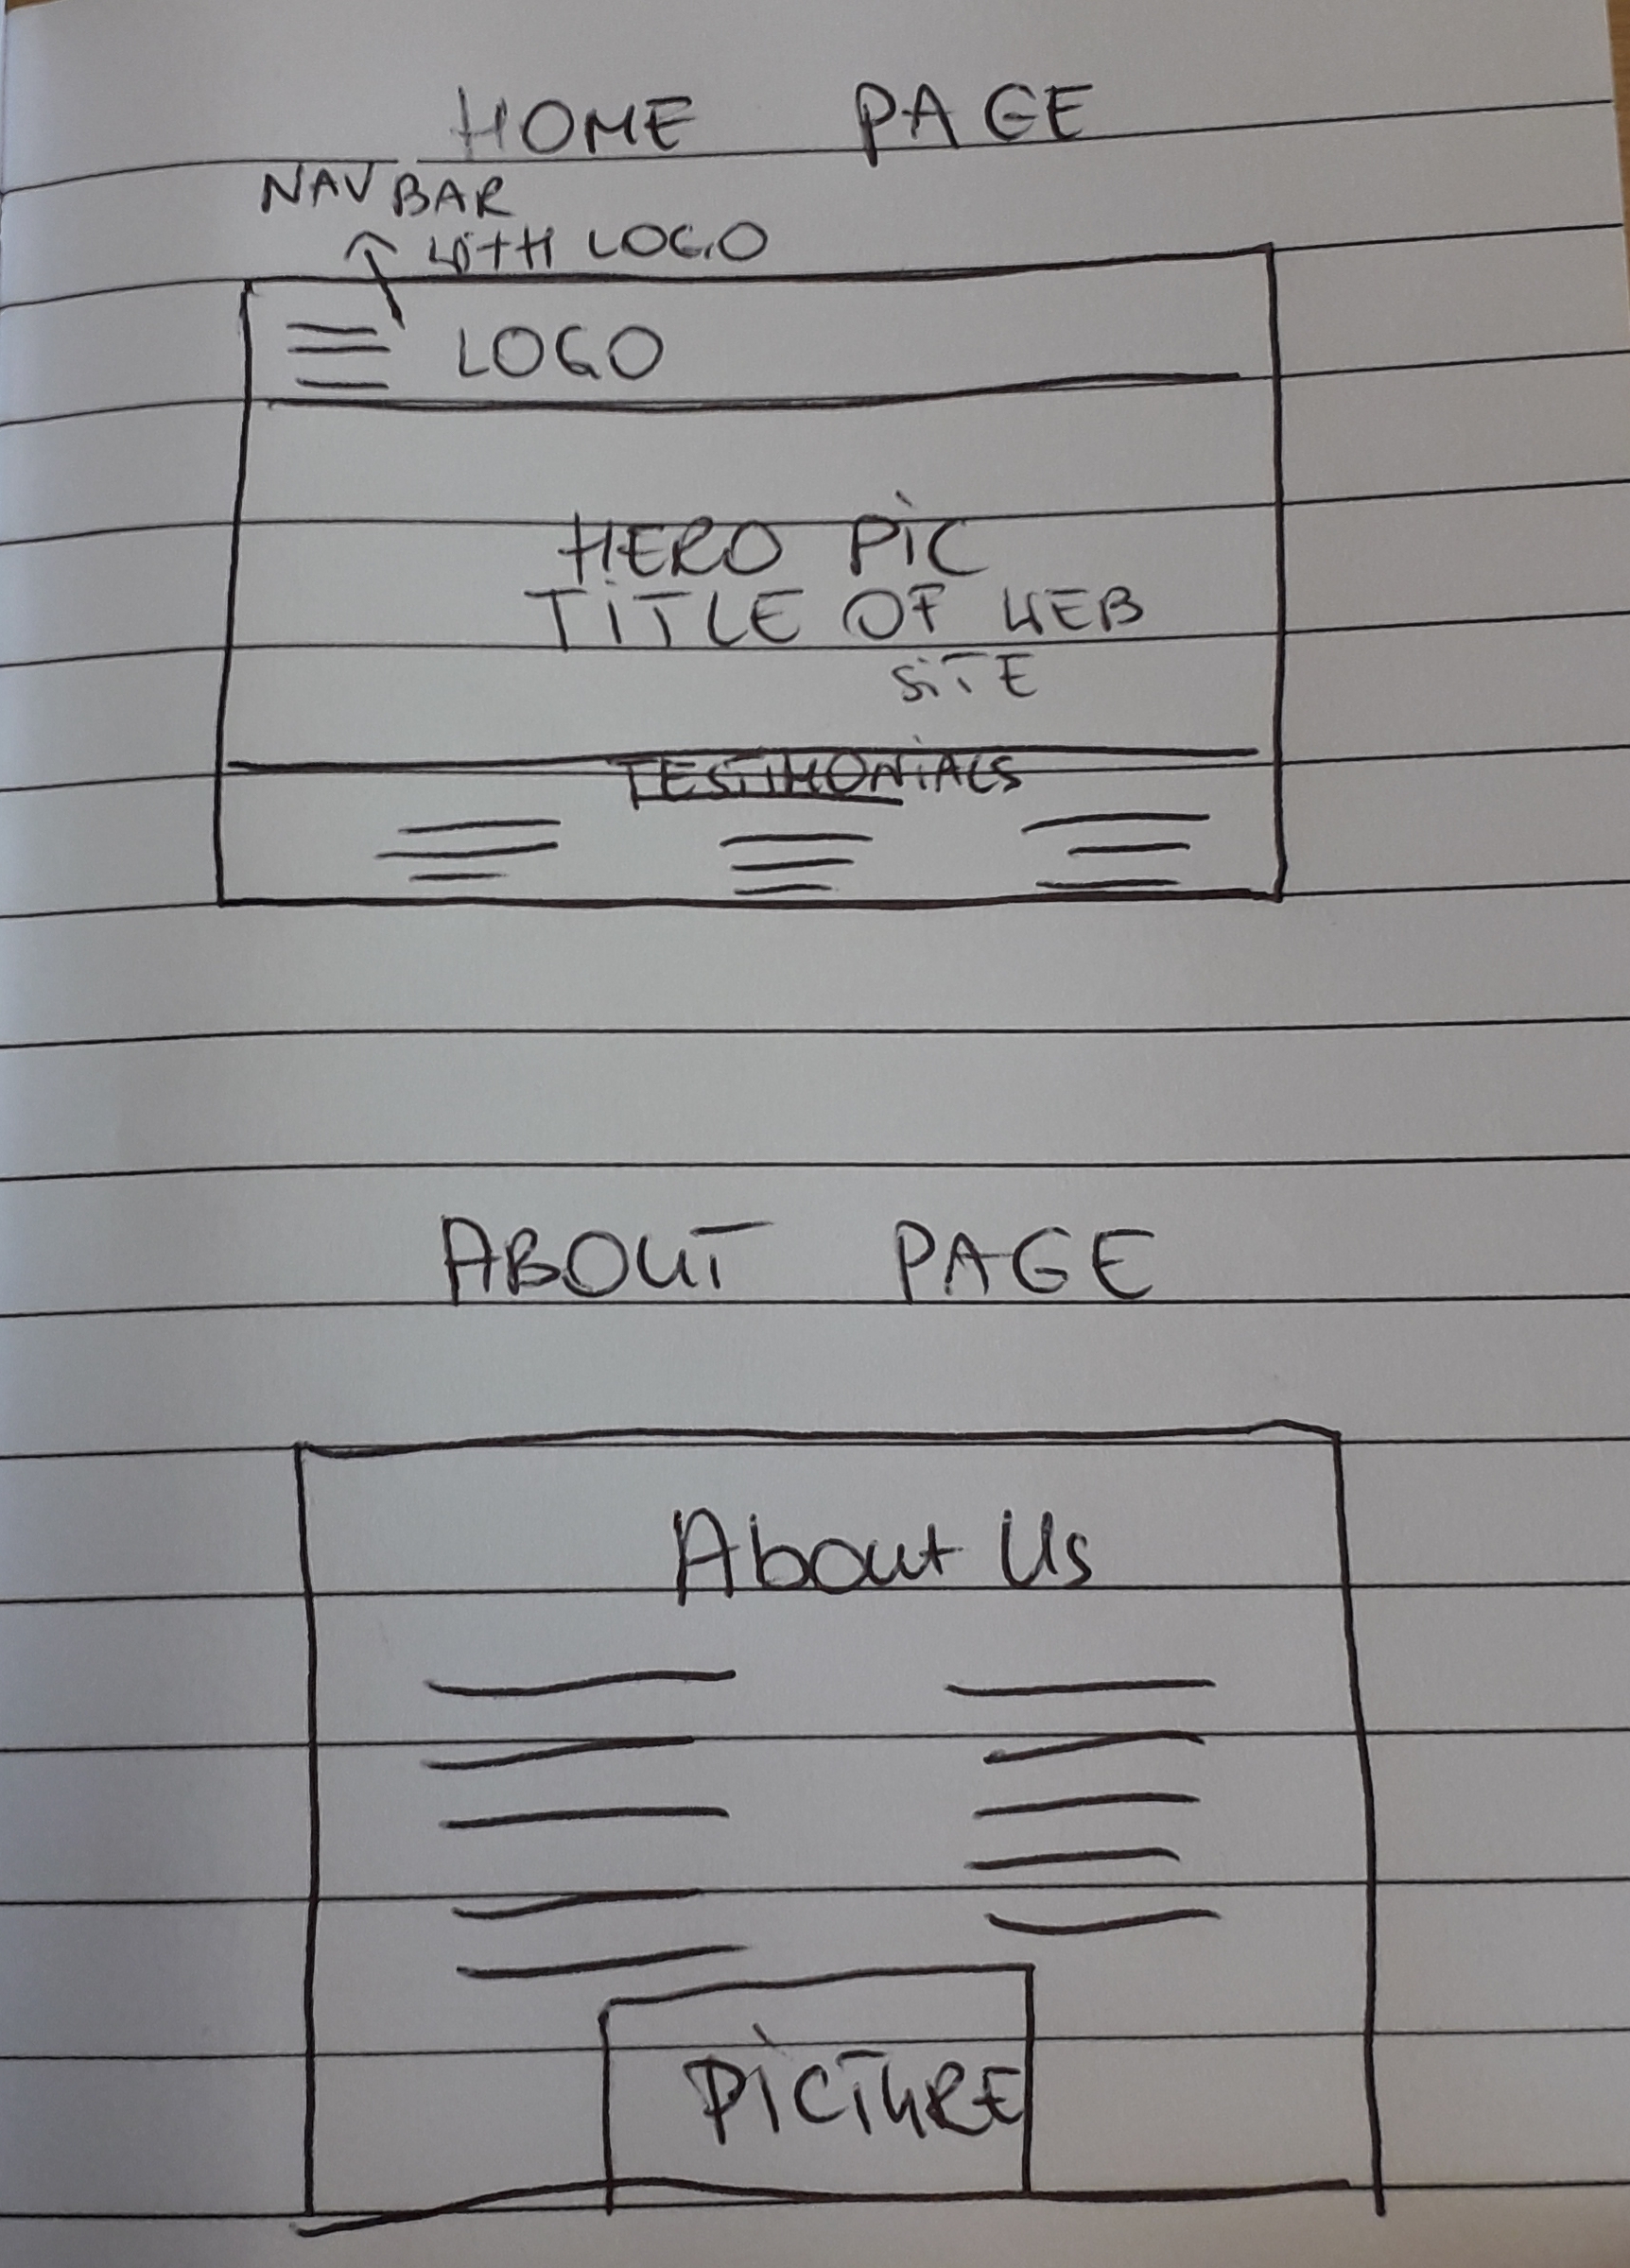 HOME PAGE
NAV BAR
WITH LOGO
LOGO
HERO PIC
TITLE OF WEB
SITE
TESTIMONIALS
ABOUT PAGE
About Us
PICTURE